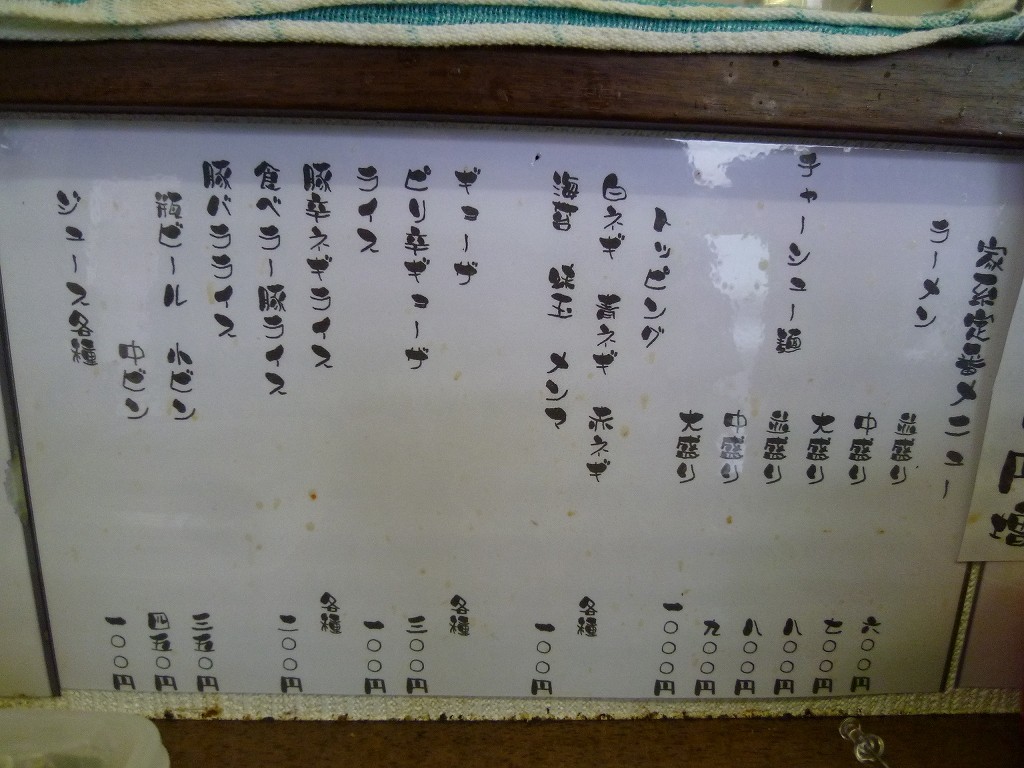 円増
家系定番メニュー
ラーメン
並盛り 六〇〇円
中盛り 七〇〇円
大盛り 八〇〇円
チャーシュー麺
並盛り 八〇〇円
中盛り 九〇〇円
大盛り 一〇〇〇円
トッピング
白ネギ 青ネギ 赤ネギ 各種
海苔 味玉 メンマ 一〇〇円
ギョーザ 各種
ピリ辛ギョーザ 三〇〇円
ライス 一〇〇円
豚辛ネギライス 各種
食べラー豚ライス 二〇〇円
豚バラライス
瓶ビール 小ビン 三五〇円
中ビン 四五〇円
ジュース各種 一〇〇円